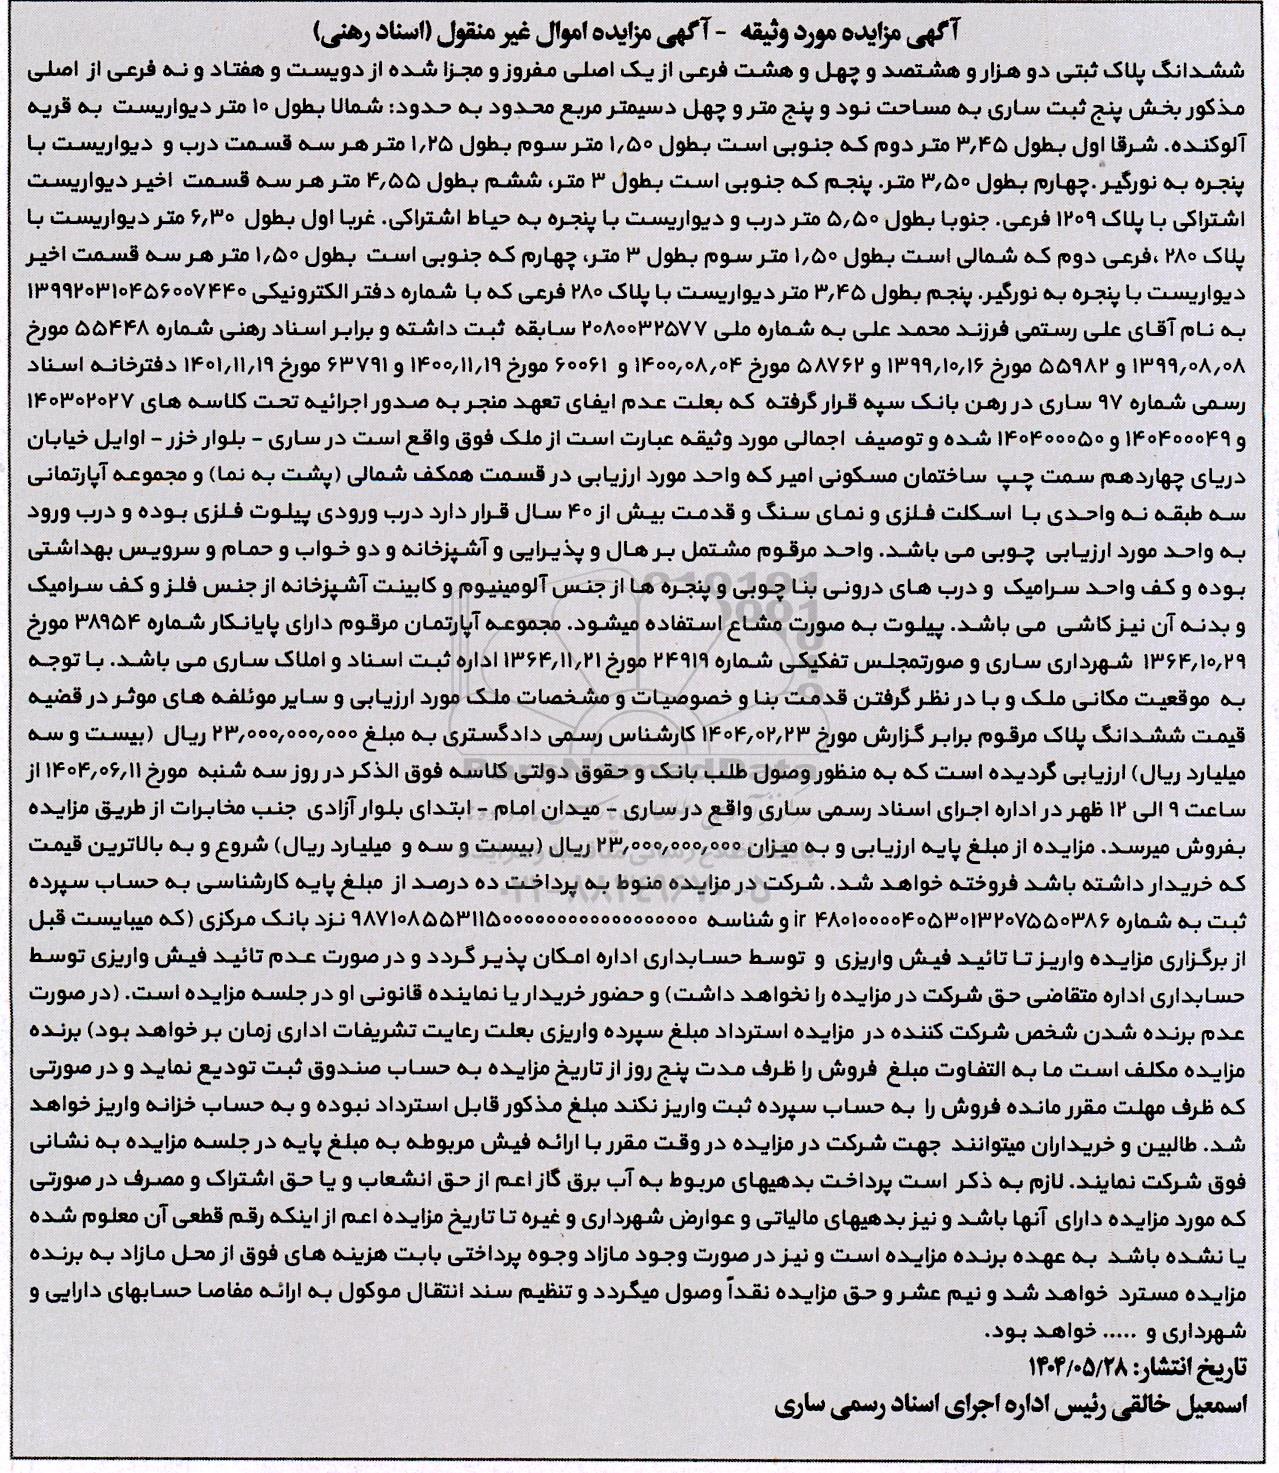 آگهی مزایده مورد وثیقه - آگهی مزایده اموال غیر منقول (اسناد رهنی)
ششدانگ پلاک ثبتی دو هزار و هشتصد و چهل و هشت فرعی از یک اصلی مفروز و مجزا شده از دویست و هفتاد و نه فرعی از اصلی
مذکور بخش پنج ثبت ساری به مساحت نود و پنج متر و چهل دسیمتر مربع محدود به حدود: شمالا بطول ۱۰ متر دیواریست به قریه
آلوکنده. شرقا اول بطول ۳٫۴۵ متر دوم که جنوبی است بطول ۱٫۵۰ متر سوم بطول ۱٫۲۵ متر هر سه قسمت درب و دیواریست با
پنجره به نورگیر .چهارم بطول ۳٫۵۰ متر. پنجم که جنوبی است بطول ۳ متر، ششم بطول ۴٫۵۵ متر هر سه قسمت اخیر دیواریست
اشتراکی با پلاک ۱۲۰۹ فرعی. جنوبا بطول ۵٫۵۰ متر درب و دیواریست با پنجره به حیاط اشتراکی. غربا اول بطول ۶٫۳۰ متر دیواریست با
پلاک ۲۸۰ ،فرعی دوم که شمالی است بطول ۱٫۵۰ متر سوم بطول ۳ متر، چهارم که جنوبی است بطول ۱٫۵۰ متر هر سه قسمت اخیر
دیواریست با پنجره به نورگیر. پنجم بطول ۳٫۴۵ متر دیواریست با پلاک ۲۸۰ فرعی که با شماره دفتر الکترونیکی ۱۳۹۹۲۰۳۱۰۴۵۶۰۰۷۴۴۰
به نام آقای علی رستمی فرزند محمد علی به شماره ملی ۲۰۸۰۰۳۲۵۷۷ سابقه ثبت داشته و برابر اسناد رهنی شماره ۵۵۴۴۸ مورخ
۱۳۹۹٫۰۸٫۰۸ و ۵۵۹۸۲ مورخ ۱۳۹۹٫۱۰٫۱۶ و ۵۸۷۶۲ مورخ ۱۴۰۰٫۰۸٫۰۴ و ۶۰۰۶۱ مورخ ۱۴۰۰٫۱۱٫۱۹ و ۶۳۷۹۱ مورخ ۱۴۰۱٫۱۱٫۱۹ دفترخانه اسناد
رسمی شماره ۹۷ ساری در رهن بانک سپه قرار گرفته که بعلت عدم ایفای تعهد منجر به صدور اجرائیه تحت کلاسه های ۱۴۰۳۰۲۰۲۷
و ۱۴۰۴۰۰۰۴۹ و ۱۴۰۴۰۰۰۵۰ شده و توصیف اجمالی مورد وثیقه عبارت است از ملک فوق واقع است در ساری - بلوار خزر - اوایل خیابان
دریای چهاردهم سمت چپ ساختمان مسکونی امیر که واحد مورد ارزیابی در قسمت همکف شمالی (پشت به نما) و مجموعه آپارتمانی
سه طبقه نه واحدی با اسکلت فلزی و نمای سنگ و قدمت بیش از ۴۰ سال قرار دارد درب ورودی پیلوت فلزی بوده و درب ورود
به واحد مورد ارزیابی چوبی می باشد. واحد مرقوم مشتمل بر هال و پذیرایی و آشپزخانه و دو خواب و حمام و سرویس بهداشتی
بوده و کف واحد سرامیک و درب های درونی بنا چوبی و پنجره ها از جنس آلومینیوم و کابینت آشپزخانه از جنس فلز و کف سرامیک
و بدنه آن نیز کاشی می باشد. پیلوت به صورت مشاع استفاده میشود. مجموعه آپارتمان مرقوم دارای پایانکار شماره ۳۸۹۵۴ مورخ
۱۳۶۴٫۱۰٫۲۹ شهرداری ساری و صورتمجلس تفکیکی شماره ۲۴۹۱۹ مورخ ۱۳۶۴٫۱۱٫۲۱ اداره ثبت اسناد و املاک ساری می باشد. با توجه
به موقعیت مکانی ملک و با در نظر گرفتن قدمت بنا و خصوصیات و مشخصات ملک مورد ارزیابی و سایر موئلفه های موثر در قضیه
قیمت ششدانگ پلاک مرقوم برابر گزارش مورخ ۱۴۰۴٫۰۲٫۲۳ کارشناس رسمی دادگستری به مبلغ ۲۳٫۰۰۰٫۰۰۰٫۰۰۰ ریال (بیست و سه
میلیارد ریال) ارزیابی گردیده است که به منظور وصول طلب بانک و حقوق دولتی کلاسه فوق الذکر در روز سه شنبه مورخ ۱۴۰۴٫۰۶٫۱۱ از
ساعت ۹ الی ۱۲ ظهر در اداره اجرای اسناد رسمی ساری واقع در ساری - میدان امام - ابتدای بلوار آزادی جنب مخابرات از طریق مزایده
بفروش میرسد. مزایده از مبلغ پایه ارزیابی و به میزان ۲۳٫۰۰۰٫۰۰۰٫۰۰۰ ریال (بیست و سه و میلیارد ریال) شروع و به بالاترین قیمت
که خریدار داشته باشد فروخته خواهد شد. شرکت در مزایده منوط به پرداخت ده درصد از مبلغ پایه کارشناسی به حساب سپرده
ثبت به شماره ir ۴۸۰۱۰۰۰۰۴۰۵۳۰۱۳۲۰۷۵۵۰۳۸۶ و شناسه ۹۸۷۱۰۸۵۵۳۱۱۵۰۰۰۰۰۰۰۰۰۰۰۰۰۰۰۰۰ نزد بانک مرکزی (که میبایست قبل
از برگزاری مزایده واریز تا تائید فیش واریزی و توسط حسابداری اداره امکان پذیر گردد و در صورت عدم تائید فیش واریزی توسط
حسابداری اداره متقاضی حق شرکت در مزایده را نخواهد داشت) و حضور خریدار یا نماینده قانونی او در جلسه مزایده است. (در صورت
عدم برنده شدن شخص شرکت کننده در مزایده استرداد مبلغ سپرده واریزی بعلت رعایت تشریفات اداری زمان بر خواهد بود) برنده
مزایده مکلف است ما به التفاوت مبلغ فروش را ظرف مدت پنج روز از تاریخ مزایده به حساب صندوق ثبت تودیع نماید و در صورتی
که ظرف مهلت مقرر مانده فروش را به حساب سپرده ثبت واریز نکند مبلغ مذکور قابل استرداد نبوده و به حساب خزانه واریز خواهد
شد. طالبین و خریداران میتوانند جهت شرکت در مزایده در وقت مقرر با ارائه فیش مربوطه به مبلغ پایه در جلسه مزایده به نشانی
فوق شرکت نمایند. لازم به ذکر است پرداخت بدهیهای مربوط به آب برق گاز اعم از حق انشعاب و یا حق اشتراک و مصرف در صورتی
که مورد مزایده دارای آنها باشد و نیز بدهیهای مالیاتی و عوارض شهرداری و غیره تا تاریخ مزایده اعم از اینکه رقم قطعی آن معلوم شده
یا نشده باشد به عهده برنده مزایده است و نیز در صورت وجود مازاد وجوه پرداختی بابت هزینه های فوق از محل مازاد به برنده
مزایده مسترد خواهد شد و نیم عشر و حق مزایده نقداً وصول میگردد و تنظیم سند انتقال موکول به ارائه مفاصا حسابهای دارایی و
شهرداری و ..... خواهد بود.
تاریخ انتشار: ۱۴۰۴/۰۵/۲۸
اسمعیل خالقی رئیس اداره اجرای اسناد رسمی ساری